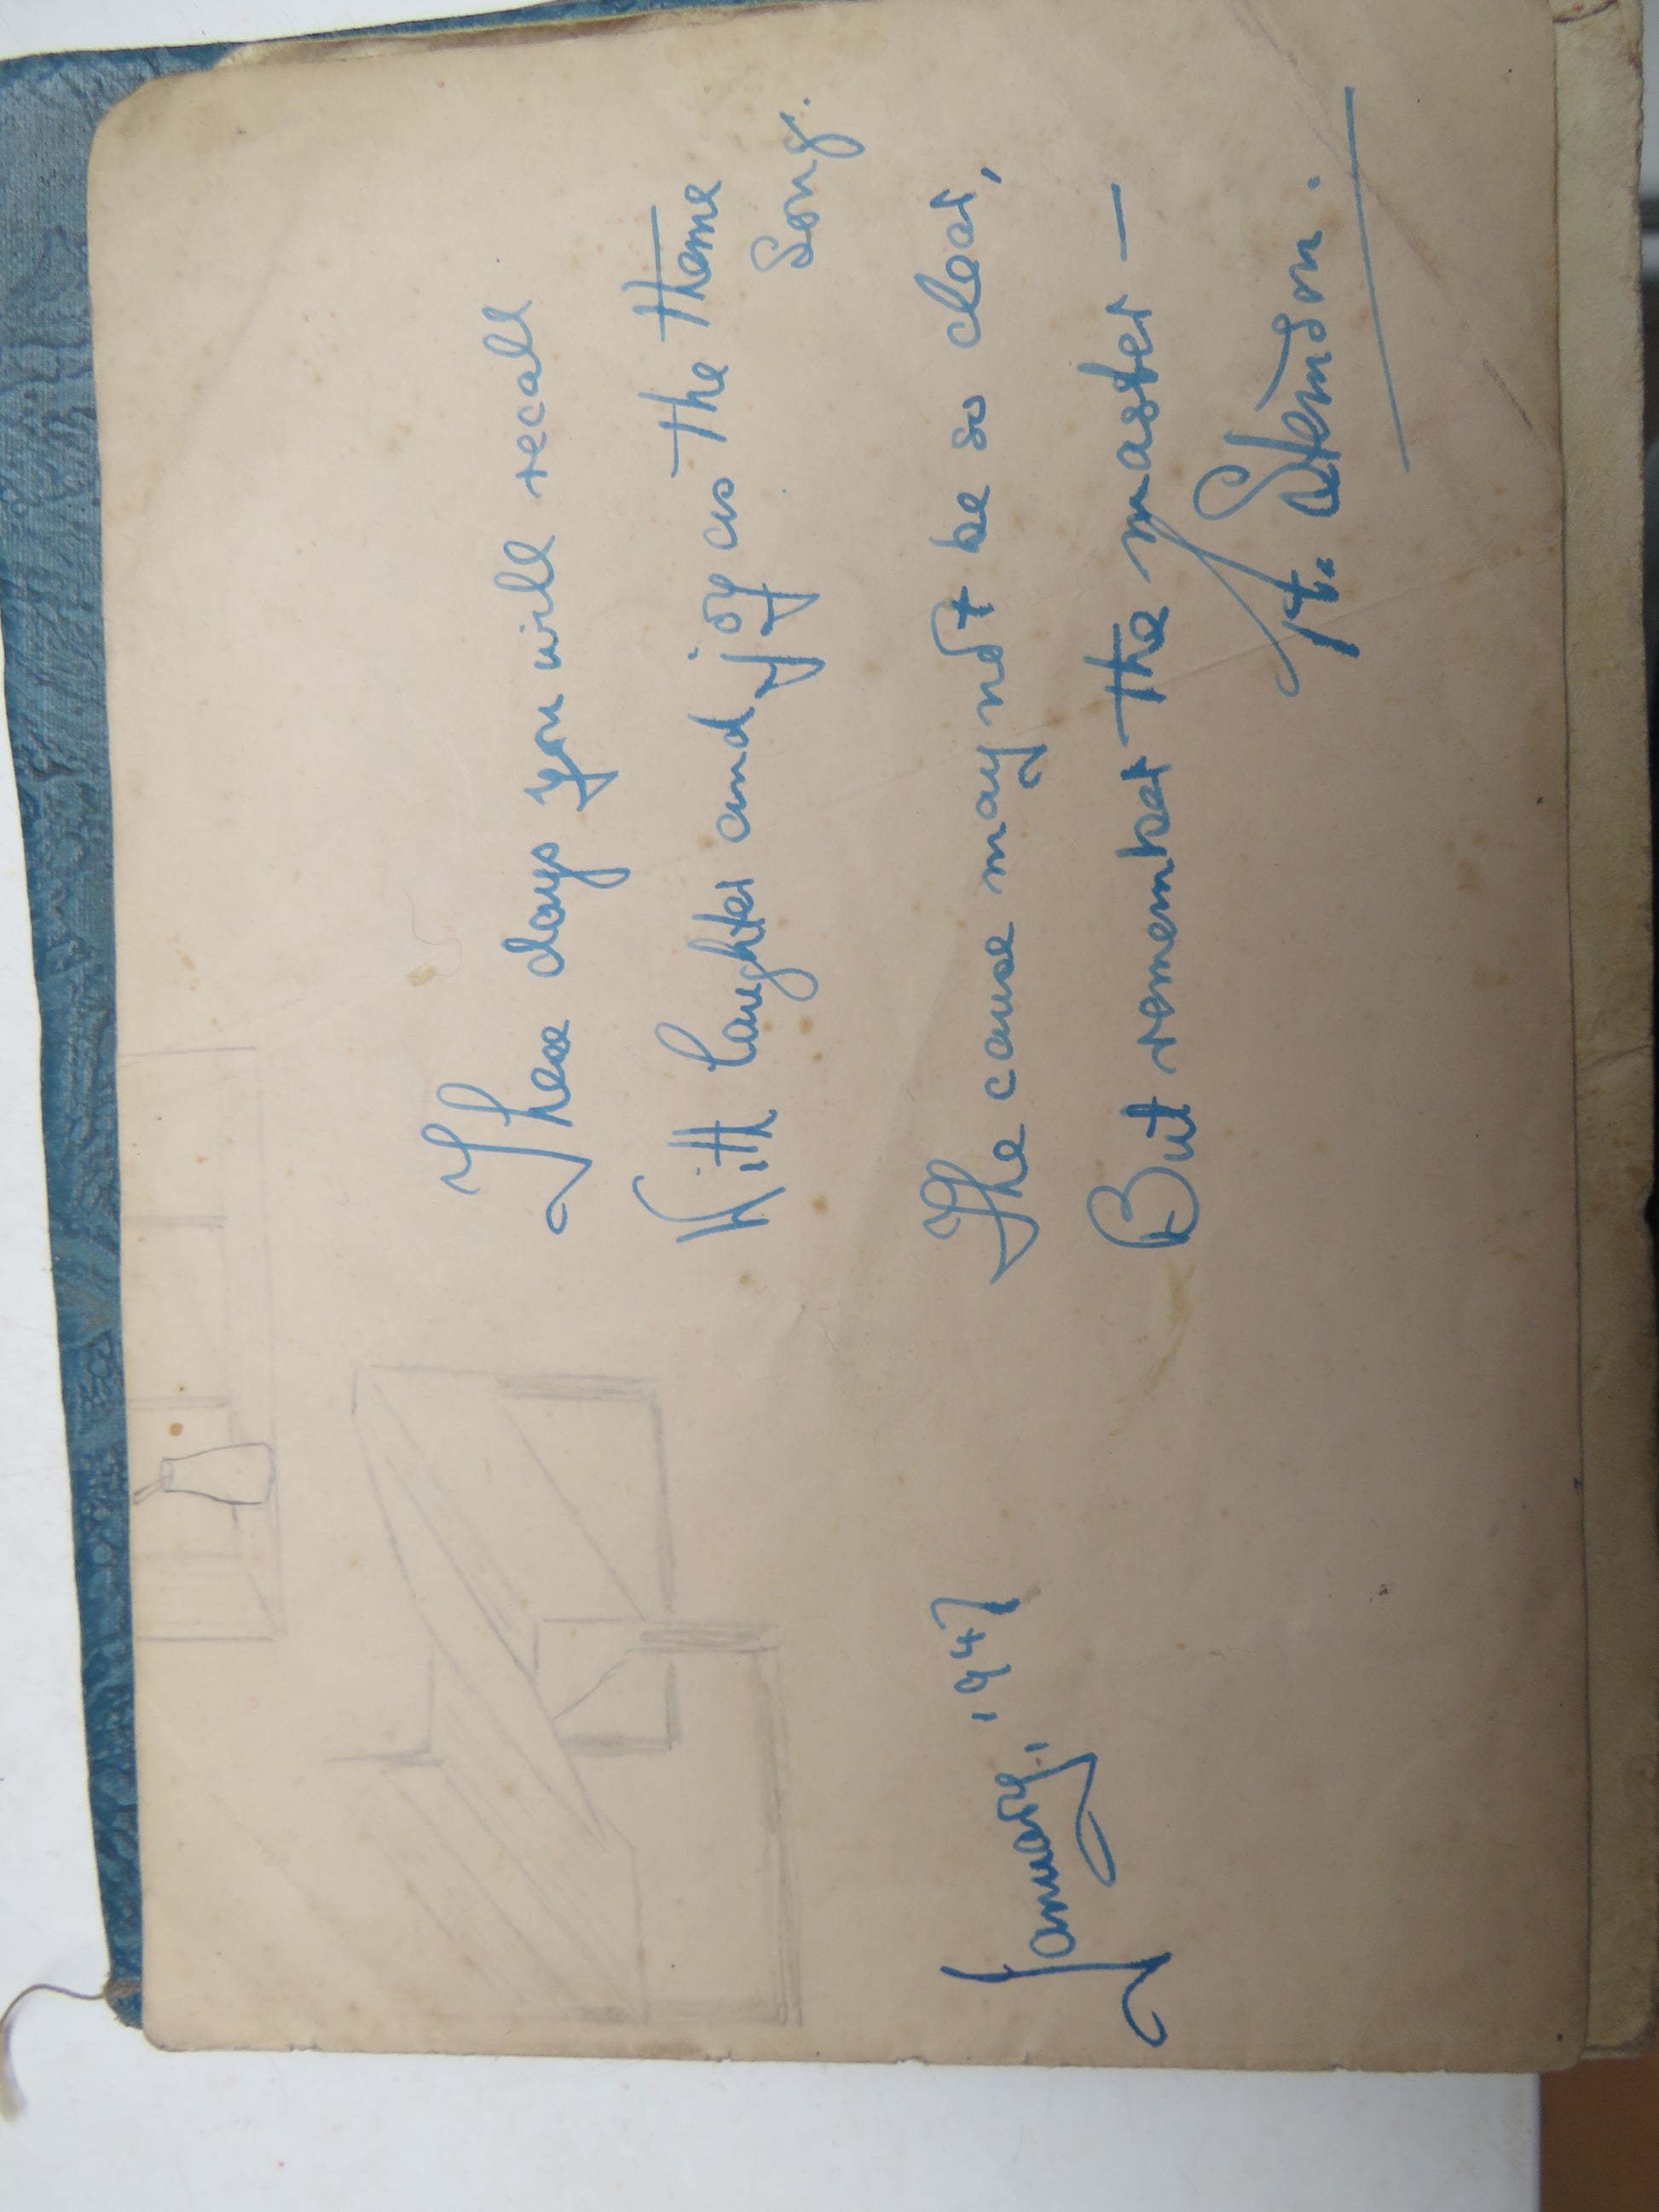 These days you will recall
With laughter and joy as the theme
song.
The cause may not be so clear,
But remember the master —
H. Stenson.
January, 1947